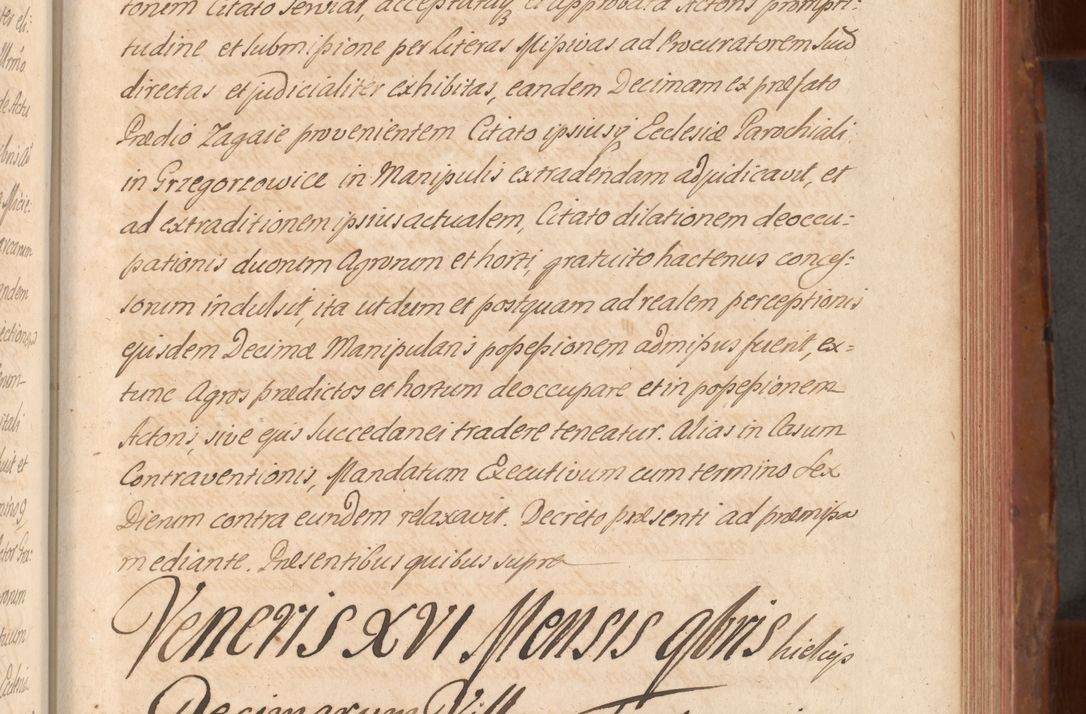 tonem Citato serviat, acceptataq3 et approbata Actoris prompti:
tudine et submissione per Literas Missivas ad Procuratorem suũ
directas et judicialiter exhibitas, eandem Decimam ex præfato
Prædio Zagaie provenientem Citato ipsiusq Ecclesiæ Parochiali
in Grzegorzowice in Manipulis extradendam adjudicavit, et
ad extraditionem ipsius actualem, Citato dilationem deoccu=
pationis duorum Agrorum et horti, gratuito hactenus conces=
sorum indulsit, ita ut dum et postquam ad realem perceptionis
ejusdem Decimæ Manipularis possessionem admissus fuerit, ex=
tunc Agros prædictos et hortum deoccupare et in possessionem
Actoris, sive ejus Succedanei tradere teneatur. Alias in Casum
Contraventionis, Mandatum Executivum cum termino sex
Dierum contra eundem relaxavit. Decreto præsenti ad præmissa
mediante. Præsentibus quibus supra
Veneris XVI Mensis 9bris
Decimarum Vill